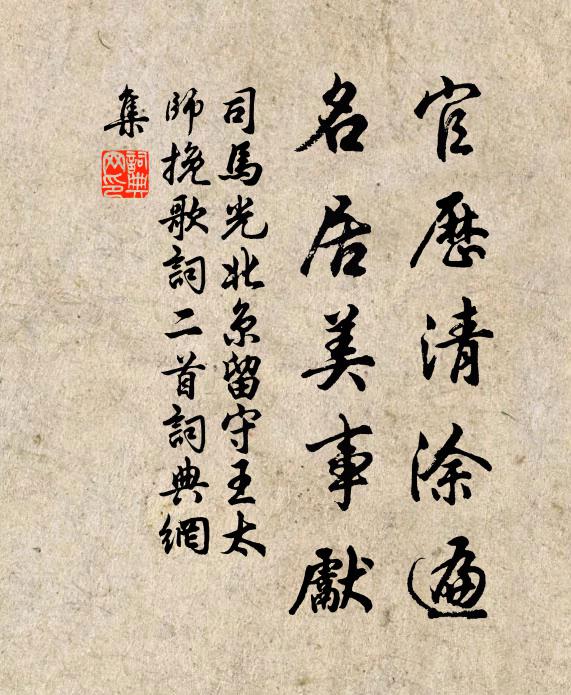 官歷清涂遍
名居美事獻
司馬光北京留守王太
師挽歌詞二首詞典網
集
詞典
网印